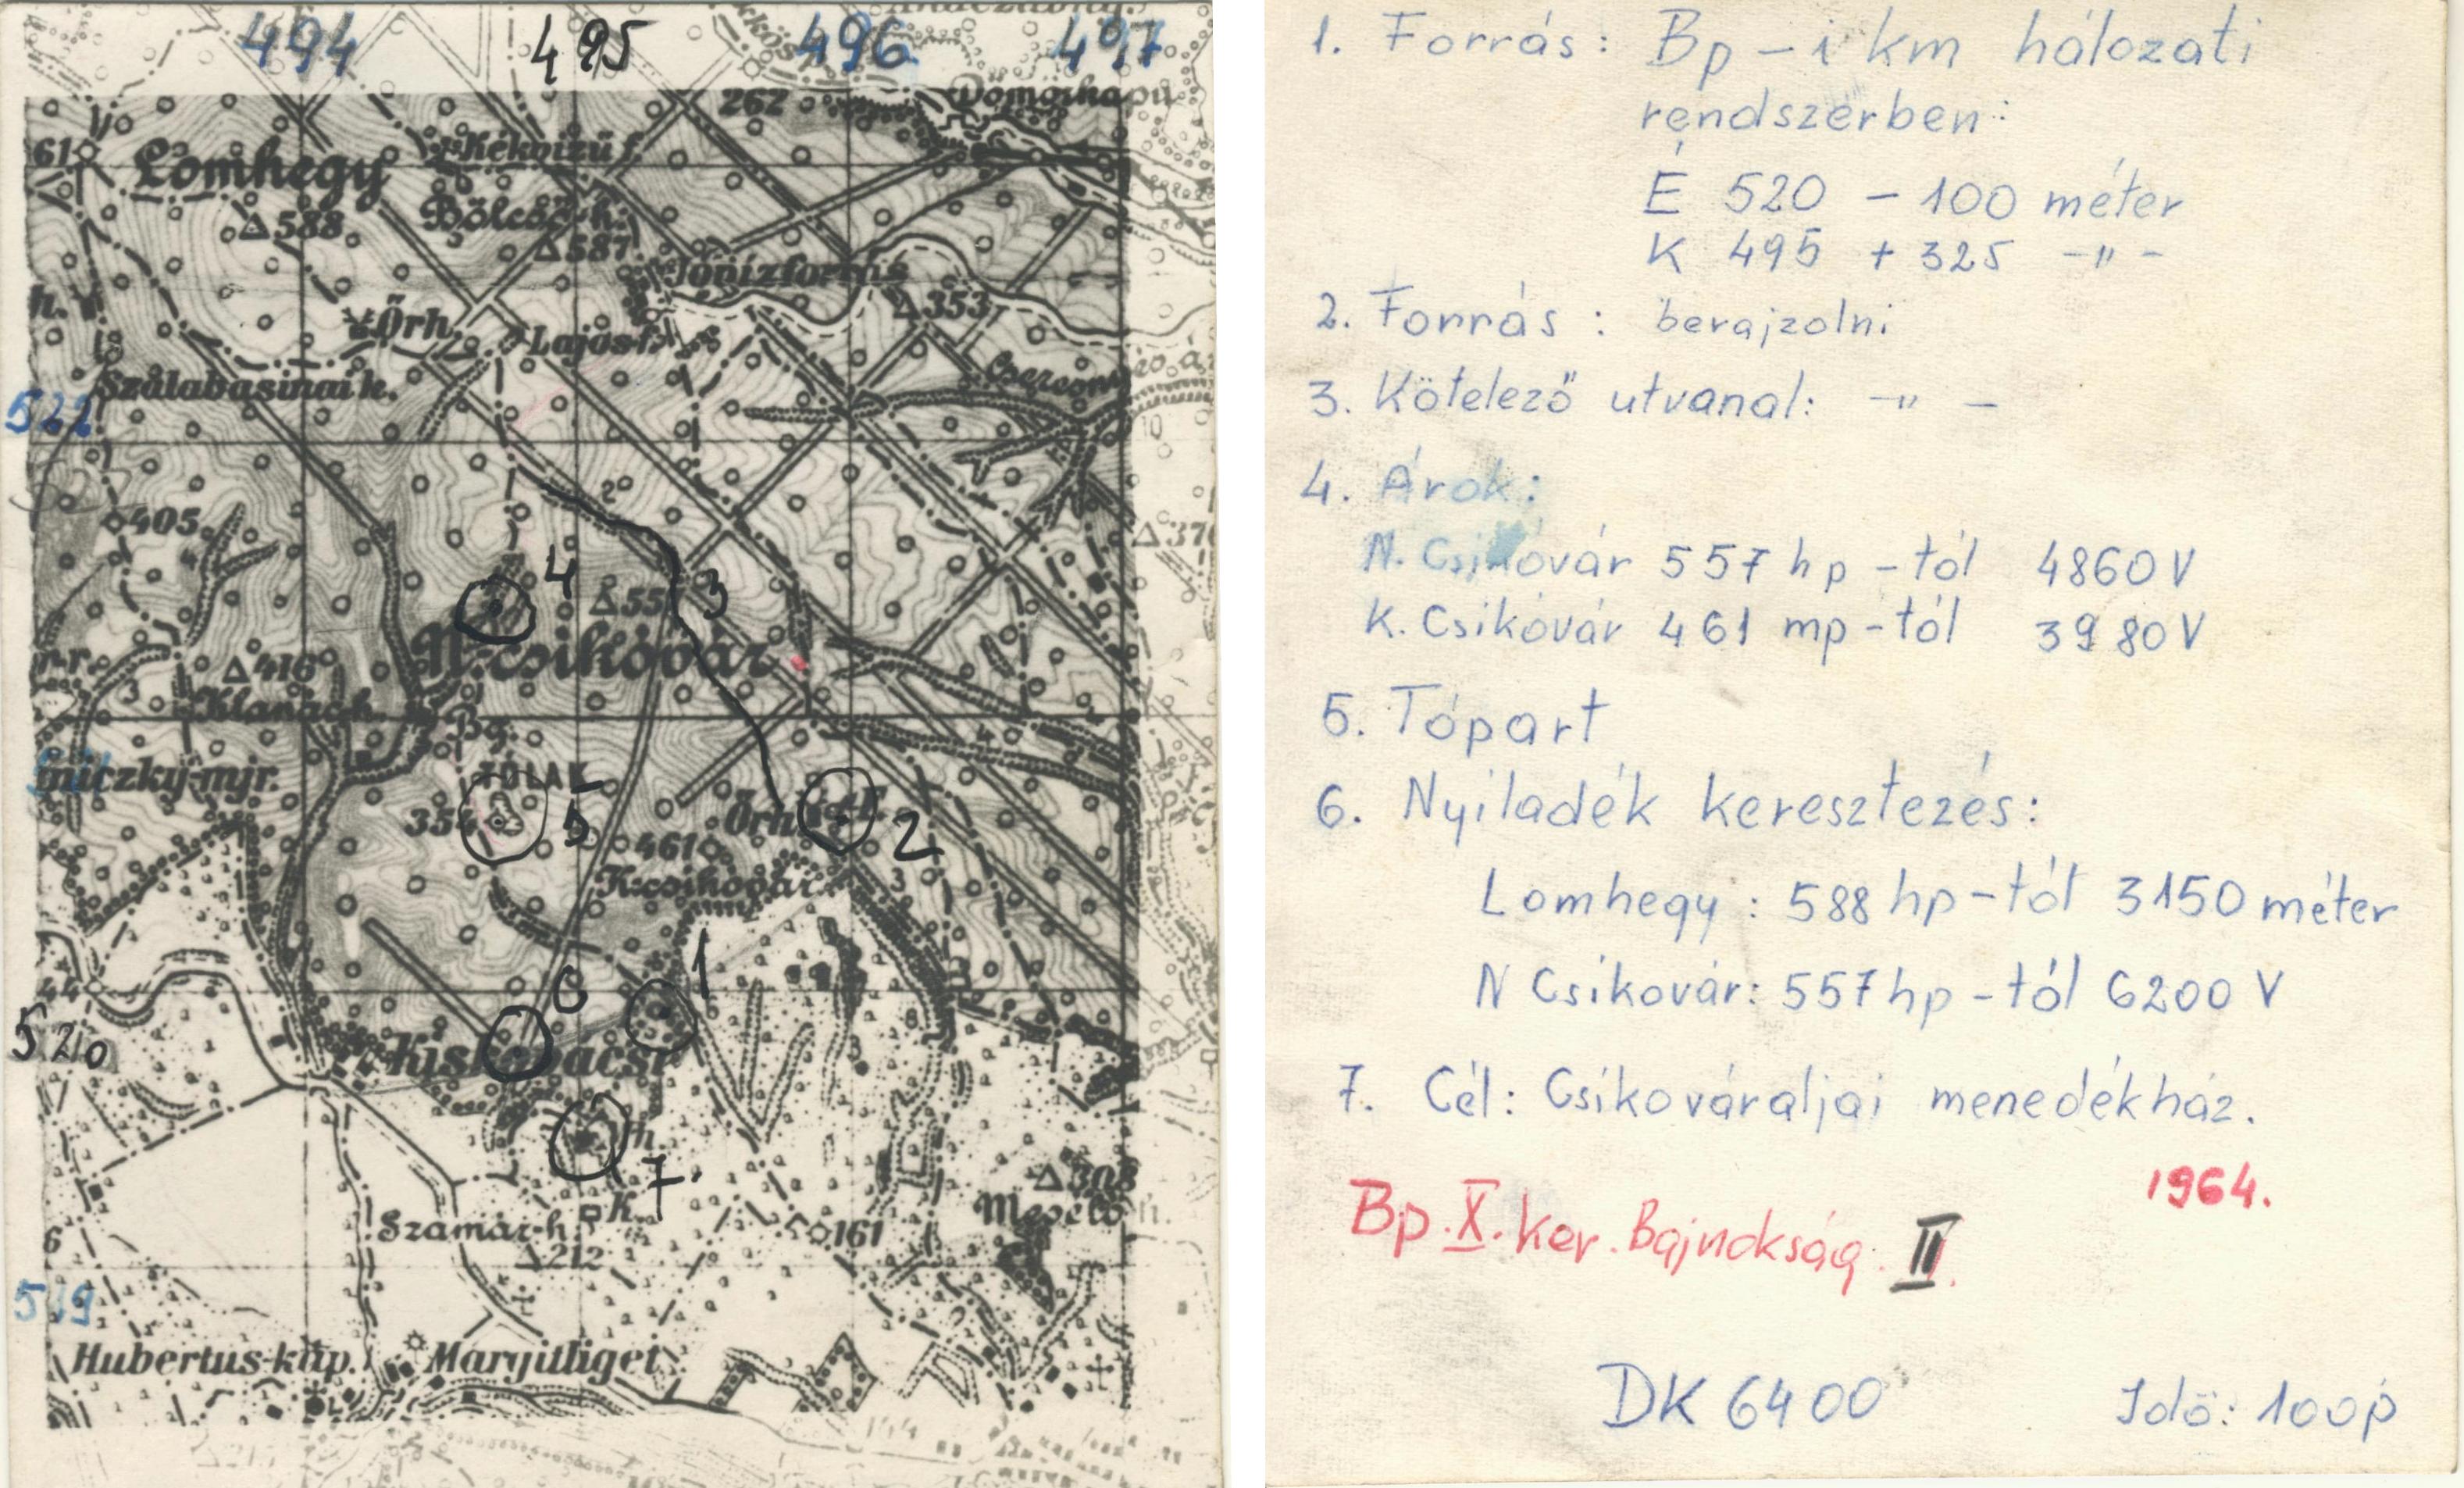 494
495
496
497
262
Lomhegy
Kékvizű f.
△588
Bölcső-h.
△587
△353
Őrh.
Lajos-f.
Szálabasinai k.
522
405
4
△55
3
N.-csikóvár
△416
Bg.
TÓLAK
354
5
Őrh.
2
461
K.csikóvár
1
6
520
Kiskovácsi
7
k.
△308
Szamár-h.
△212
161
519
Hubertus-káp.
Margitliget
1. Forrás: Bp – i km hálozati
rendszerben:
É 520 – 100 méter
K 495 + 325 –"–
2. Forrás: berajzolni
3. Kötelező utvanal: –"–
4. Árok:
N. Csikovár 557 hp – tól 4860 V
K. Csikóvár 461 mp – tól 3980 V
5. Tópart
6. Nyiladék keresztezés:
Lomhegy: 588 hp – tól 3150 méter
N Csikovár: 557 hp – tól 6200 V
7. Cél: Csikováraljai menedékház.
1964.
Bp. X. ker. Bajnokság. II.
DK 6400 Idő: 100p